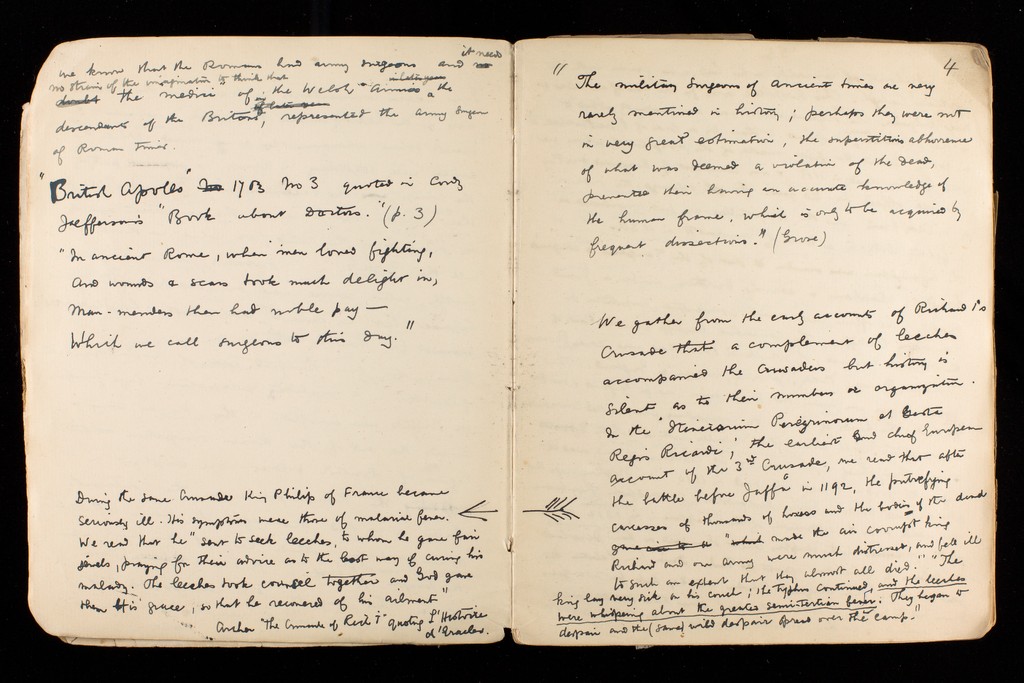 it need
we know that the Romans had army surgeons and no
no strain of the imagination to think that
doubt the medici of the Welsh Annals the
descendants of the Britons, represented the army surgeon
of Roman Times.
"British Apollo" 1703 No 3 quoted in Cordy
Jeafferson's "Book about Doctors." (p. 3)
"In ancient Rome, when men loved fighting,
And wounds & scars took much delight in,
Man-menders then had noble pay —
Which we call surgeons to this day."
During the same Crusade King Philip of France became
seriously ill. His symptoms were those of malarial fever.
We read that he "sent to seek leeches, to whom he gave fair
jewels, praying for their advice as to the best way of curing his
malady. The leeches took counsel together and God gave
them His grace, so that he recovered of his ailment"
Archer "The Crusade of Rich I" quoting L'Histoire
d'Eracles.
4
"The military surgeons of ancient times are very
rarely mentioned in history; perhaps they were not
in very great estimation, the superstitious abhorrence
of what was deemed a violation of the dead,
prevented their having an accurate knowledge of
the human frame, which is only to be acquired by
frequent dissections." (Grose)
We gather from the early accounts of Richard I's
Crusade that a complement of leeches
accompanied the Crusaders but history is
silent as to their numbers or organization.
In the "Itinerarium Peregrinorum et Gesta
Regis Ricardi", the earliest and chief European
account of the 3rd Crusade, we read that after
the battle before Jaffa in 1192, the putrefying
carcasses of thousands of horses and the bodies of the dead
"which made the air corrupt King
Richard and our army were much distressed, and fell ill
to such an extent that they almost all died." "The
king lay very sick on his couch; the typhus continued, and the leeches
were whispering about the greater semi-tertian fever. They began to
despair and the (sava) wild despair spread over the camp."